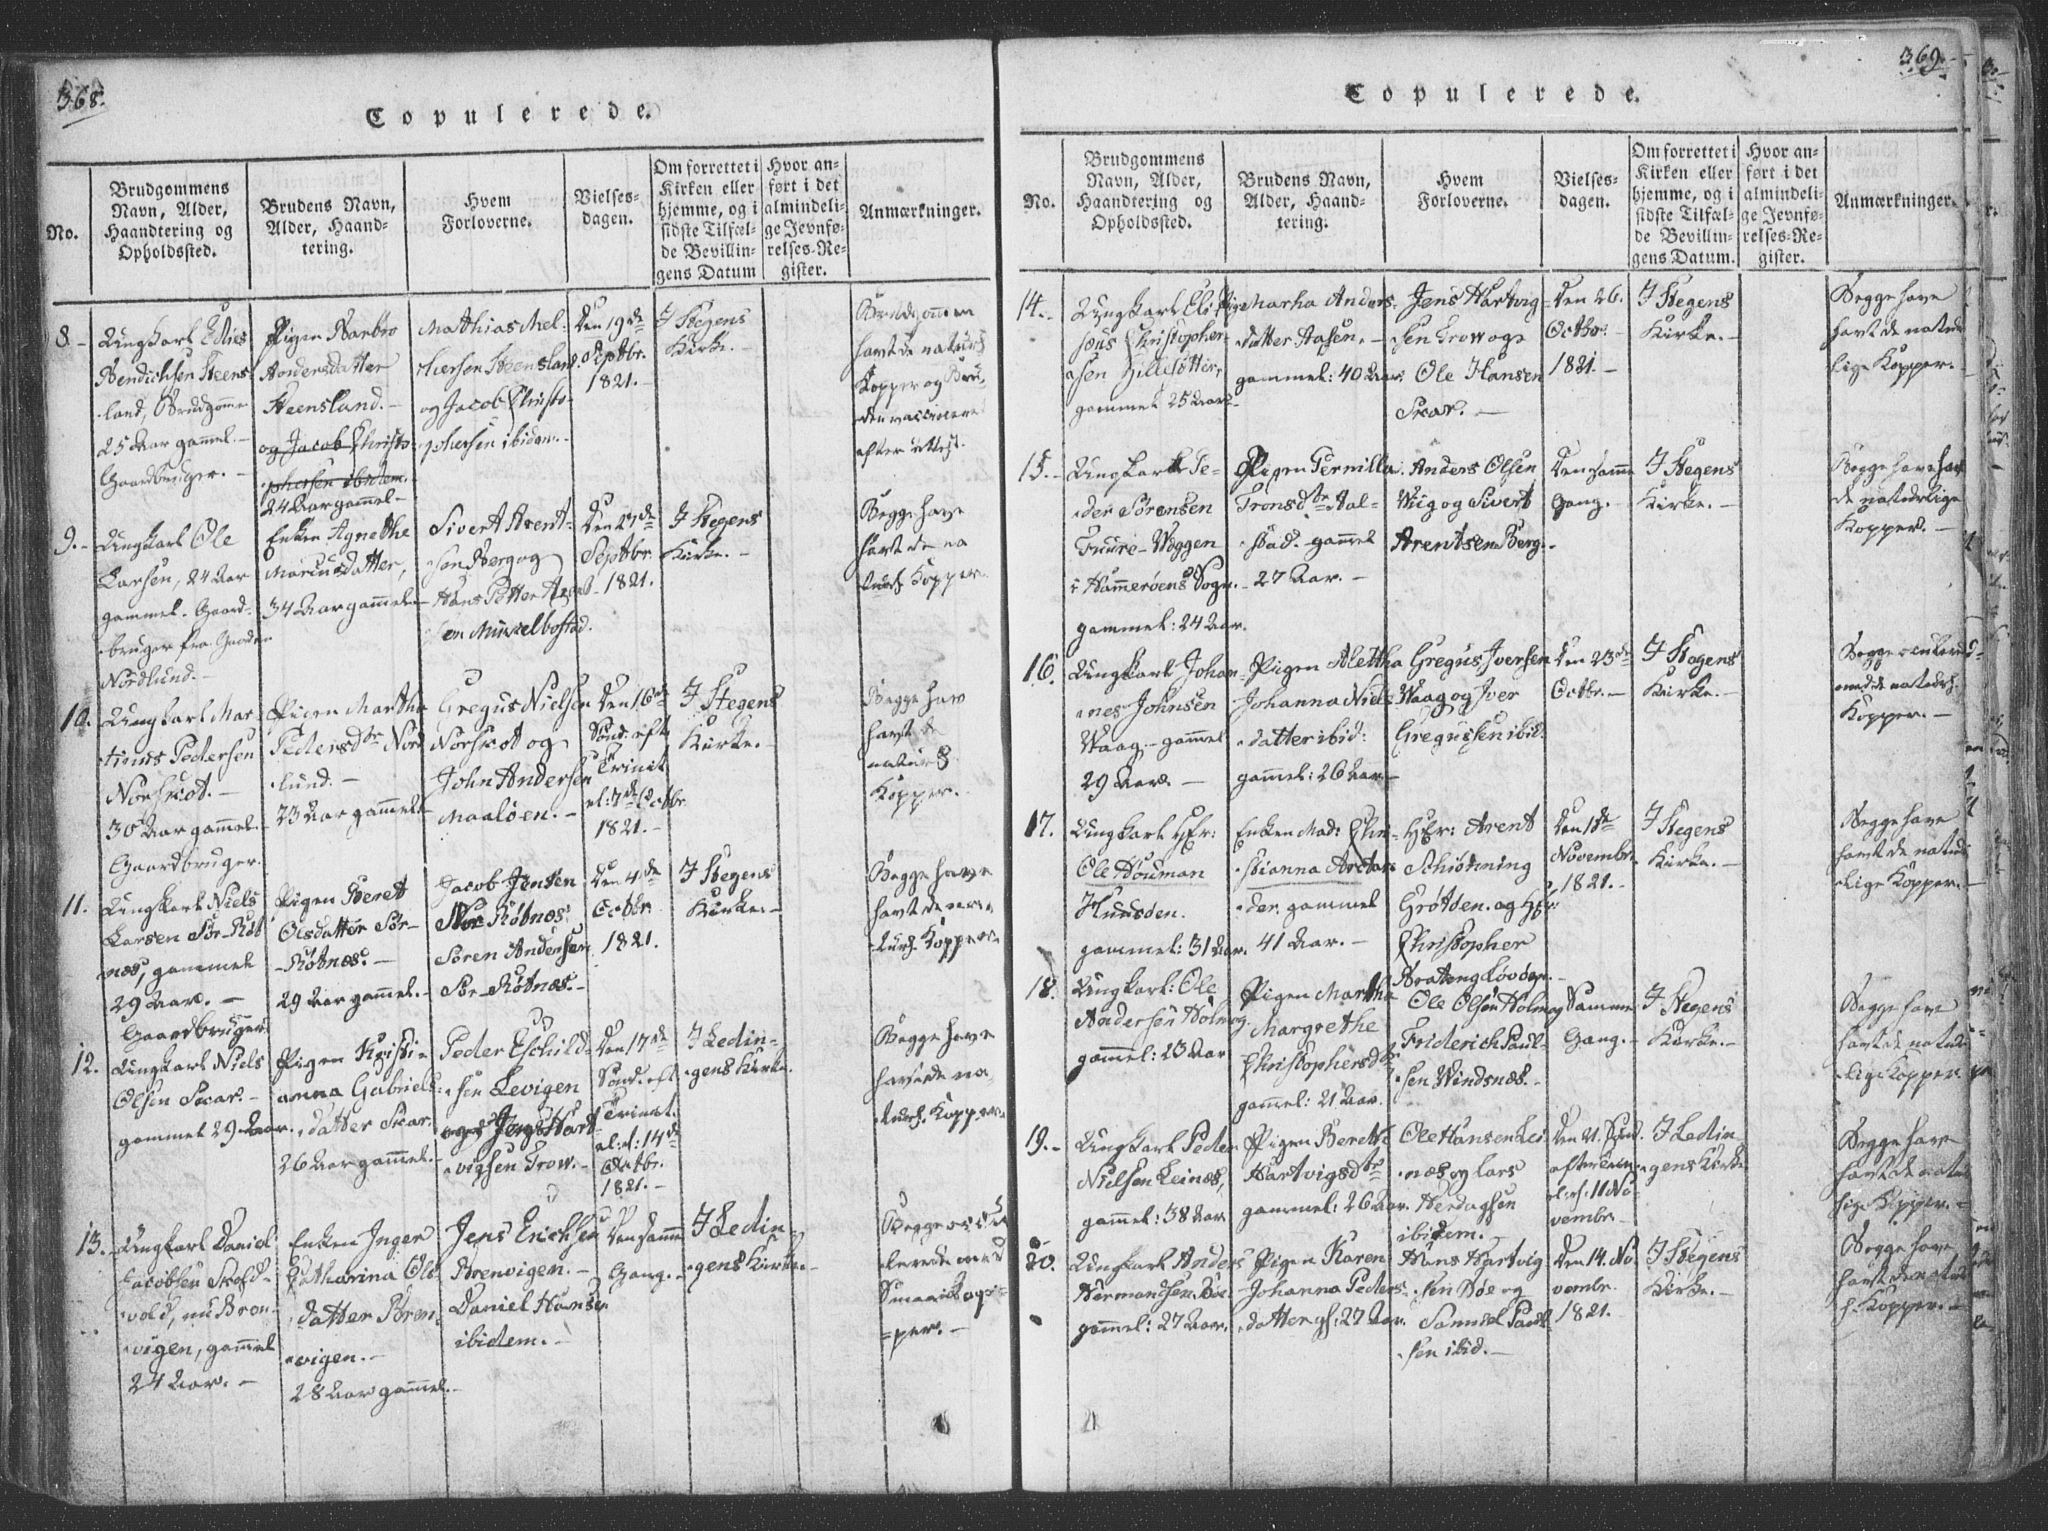 368.
Copulerede.
No.
Brudgommens
Navn, Alder,
Haandtering og
Opholdssted.
Brudens Navn,
Alder, Haand-
tering.
Hvem
Forloverne.
Vielses-
dagen.
Om forrettet i
Kirken eller
hjemme, og i
sidste Tilfæl-
de Bevillin-
gens Datum
Hvor an-
ført i det
almindeli-
ge Jevnfø-
relses-Re-
gister.
Anmærkninger.
8 -
Ungkarl
Bendichsen Steens
land, Brudgomme
25 Aar gammel. -
Gaardbruger. -
Pigen Barbro
Andersdatter
Steensland. -
og Jacob Christo-
phersen ibidem.
24 Aar gammel -
Mathias Mel-
chersen Steensland
og Jacob Christo-
phersen ibidem. -
Den 19de
Septbr.
1821. -
I Stegens
Kirke. -
Brudgommen
havt de naturl.
Kopper og Bru-
den vaccineret
efter Attest.
9. -
Ungkarl Ole
Larsen, 24 Aar
gammel. Gaard-
bruger fra Gaarden
Nordlund. -
Enken Agnethe
Marcusdatter,
34 Aar gammel. -
Sivert Arent-
sen Berg og
Hans Petter Arent-
sen Musselbostad.
Den 27de
Septbr.
1821.
I Stegens
Kirke. -
Begge have
havt de na
turl. Kopper.
10.
Ungkarl Mar
tinus Pedersen
Norskot. -
30 Aar gammel. -
Gaardbruger.
Pigen Martha
Pedersdtr Nord
lund. -
23 Aar gammel. -
Gregus Nielsen
Norskot og
John Andersen
Maaløen. -
Den 16de
Sønd. eft.
Trinit.
el: 7de Octbr.
1821. -
I Stegens
Kirke. -
Begge have
havt de
naturl.
Kopper.
11.
Ungkarl Niels
Larsen Sør-Røt
næs, gammel
29 Aar. -
Gaardbruger.
Pigen Beret
Olsdatter Sør-
Røtnæs. -
29 Aar gammel. -
Jacob Jensen
Nor Røtnæs.
Søren Andersen
Sør-Røtnæs. -
Den 4de
Octbr.
1821.
I Stegens
Kirke. -
Begge have
havt de na-
turl. Kopper.
12.
Ungkarl Niels
Olsen Skar. -
gammel 29 Aar.
Pigen Kristi-
anna Gabriels-
datter Skar.
26 Aar gammel. -
Peder Eschild-
sen Levigen
og Jens Hart-
vigsen Grow. -
Den 17de
Sønd. eft
Trinit.
el: 14de
Octbr.
1821. -
I Ledin-
gens Kirke.
Begge have
havt de na-
turl. Kopper.
13.
Ungkarl Daniel
Jacobsen
vold, nu Bren
vigen, gammel
24 Aar. -
Enken Inger
Catharina Ols
datter Bren
vigen. -
28 Aar gammel. -
Jens Erichsen
Brenvigen. -
Daniel Hansen
ibidem. -
Den samme
Gang. -
I Ledin-
gens Kirke. -
Begge
med
per. -
369.
Copulerede.
No.
Brudgommens
Navn, Alder,
Haandtering og
Opholdssted.
Brudens Navn,
Alder, Haand-
tering.
Hvem
Forloverne.
Vielses-
dagen.
Om forrettet i
Kirken eller
hjemme, og i
sidste Tilfæl-
de Bevillin-
gens Datum.
Hvor an-
ført i det
almindeli-
ge Jevnfø-
relses-Re-
gister.
Anmærkninger.
14. -
Ungkarl Eli
sæus Christopher
sen
gammel 25 Aar. -
Pige Marha Anders
datter Aasen. -
gammel: 40 Aar.
Jens Hartvig
sen Grow og
Ole Hansen
Skar. -
Den 26.
Octbr:
1821. -
I Stegens
Kirke. -
Begge have
havt de natur
lige Kopper. -
15. -
Ungkarl Pe-
der Sørensen
Fuure-Woggen
i Hammerøens Sogn. -
gammel: 24 Aar.
Pigen Pernilla
Tronsdtr Aal-
stad. gammel
27 Aar. -
Anders Olsen
Wiig og Sivert
Arentsen Berg. -
Den samme
Gang.
I Stegens
Kirke. -
Begge have havt
de naturlige
Kopper. -
16.
Ungkarl Johan-
nes Johnsen
Waag. - gammel
29 Aar. -
Pigen Alettha
Johanna Niels
datter ibid:
gammel: 26 Aar -
Gregus Iversen
Waag og Iver
Gregussen ibid.
Den 23de
Octbr. -
I Stegens
Kirke. -
Begge
med de naturl.
Kopper. -
17.
Ungkarl Hr:
Ole Houman
Huusøen.
gammel: 31 Aar.
Enken Mad: Chri-
stianna Arctan-
der. gammel
41 Aar. -
Hr: Arent
Schiønning
Grøtøen. og Hr:
Christopher
Brateng Løvøen. -
Den 1ste
Novembr.
1821. -
I Stegens
Kirke. -
Begge have
havt de natur
lige Kopper. -
18.
Ungkarl: Ole
Andersen Holmøg.
gammel: 23 Aar
Pigen Martha
Margrethe
Christophersdtr
gammel: 21 Aar.
Ole Olsen Holmøg
Friderich Paul-
sen Windsnæs. -
Samme
Gang. -
I Stegens
Kirke. -
Begge have
havt de natur
lige Kopper.
19. -
Ungkarl Peder
Nielsen Leinæs,
gammel: 38 Aar
Pigen Berethe
Hartvigsdtr
gammel: 26 Aar.
Ole Hansen Lei
næs og Lars
Herdagsen
ibidem. -
Den 21. Sønd.
efter Trin.
el: 11 No-
vembr.
I Ledin-
gens Kirke
Begge have
havt de natur
lige Kopper. -
20.
Ungkarl Anders
Hermandsen Bøe
gammel: 27 Aar.
Pigen Karen
Johanna Peders-
datter gl: 27 Aar.
Hans Hartvig
sen Bøe og
Samuel
sen ibid. -
Den 14. No
vembr.
1821. -
I Stegens
Kirke. -
Begge have
havt de natur
l. Kopper. -